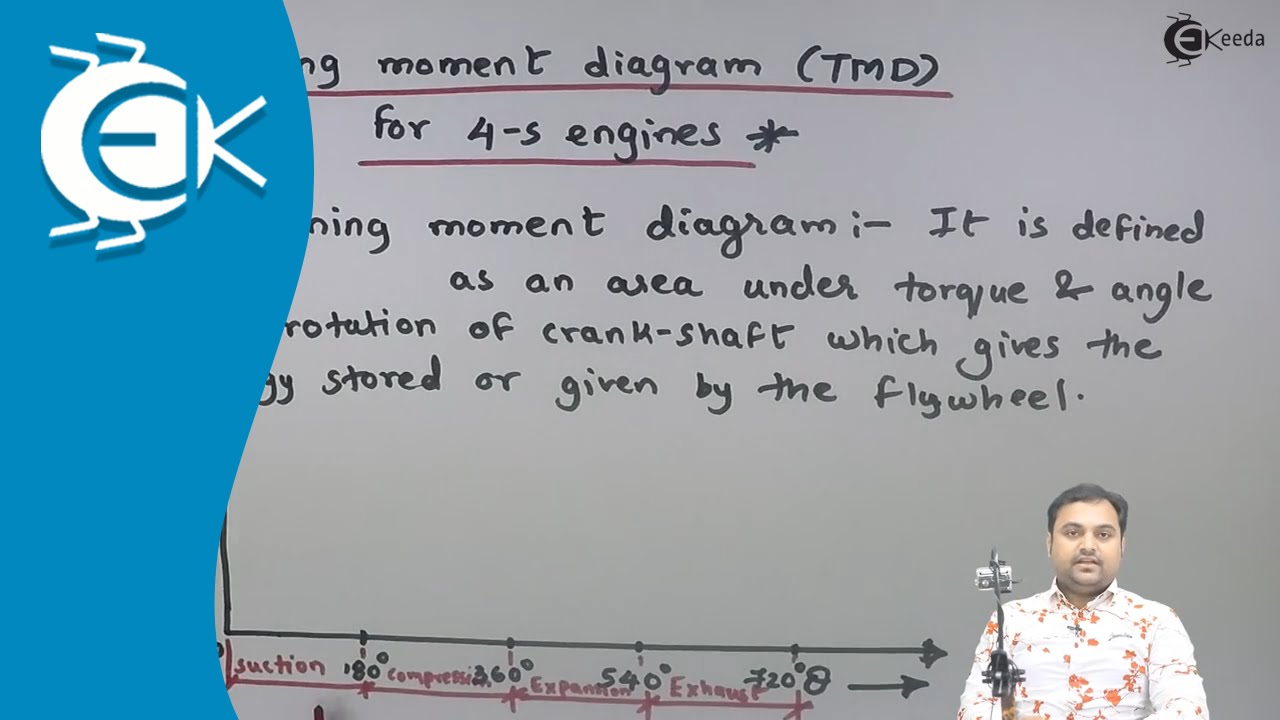 EK
EKeeda
ng moment diagram (TMD)
for 4-s engines *
ning moment diagram :- It is defined
as an area under torque & angle
rotation of crank-shaft which gives the
gy stored or given by the flywheel.
suction 180° compression 360° Expansion 540° Exhaust 720° θ